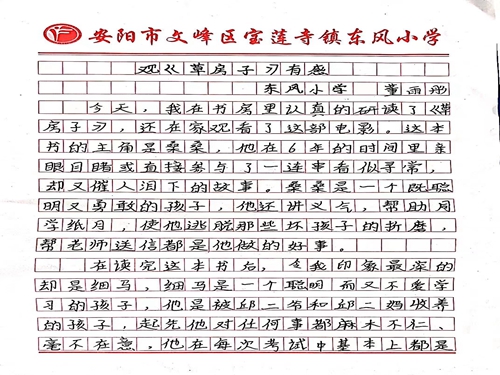 安阳市文峰区宝莲寺镇东风小学
观《草房子》有感
东风小学 董雨彤
今天，我在书房里认真的研读了《草
房子》，还在家观看了这部电影。这本
书的主角是桑桑，他在6年的时间里亲
眼目睹或直接参与了一连串看似寻常，
却又催人泪下的故事。桑桑是一个既聪
明又勇敢的孩子，他还讲义气，帮助同
学纸月，使他逃脱那些坏孩子的折磨，
帮老师送信都是他做的好事。
在读完这本书后，令我印象最深的
却是细马，细马是一个聪明而又不爱学
习的孩子，他是被邱二爷和邱二妈收养
的孩子，起先他对任何事都麻木不仁、
毫不在意，他在每次考试中基本上都是